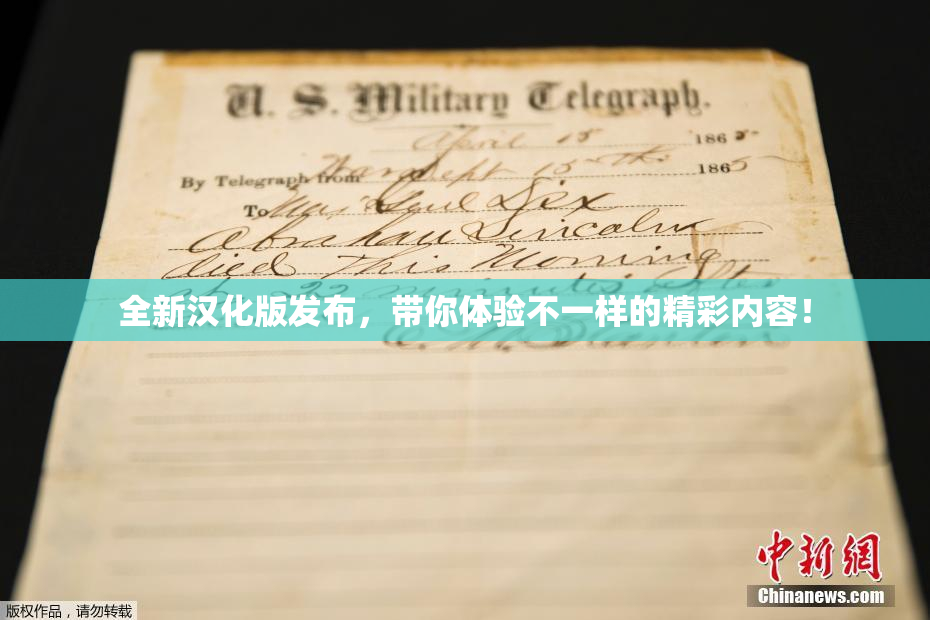 U. S. Military Telegraph.
April 15 1865
By Telegraph from War Dept 15th 1865
To Maj Genl Dix
Abraham Lincoln
died This Morning
at 22 minutes after
全新汉化版发布，带你体验不一样的精彩内容！
E. M. Stanton
中新网
Chinanews.com
版权作品，请勿转载